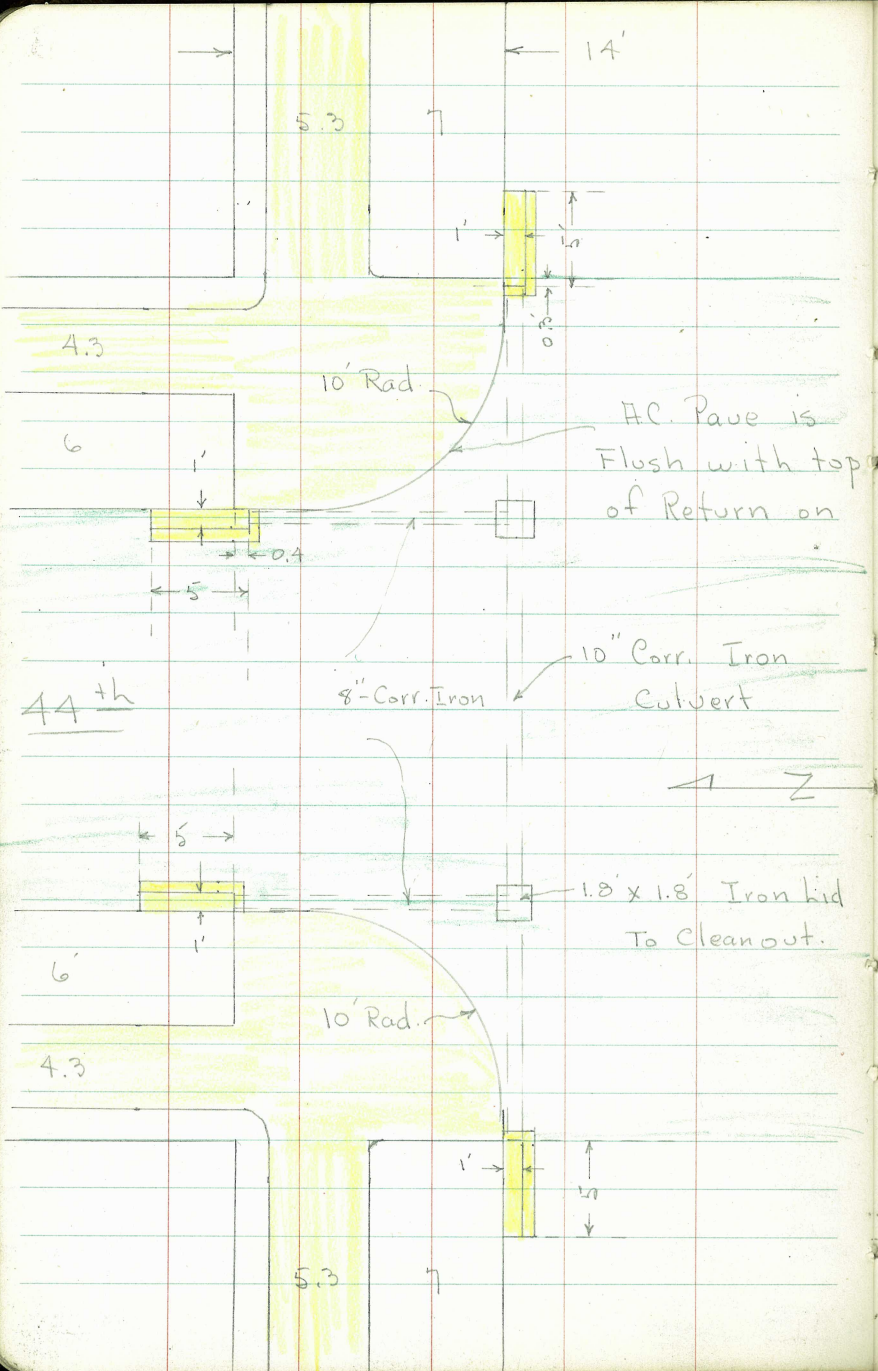 14'
5.3 7
1' 5'
0.3'
4.3
10' Rad.
A.C. Pave is
Flush with top
of Return on
6
1'
0.4
5
10" Corr. Iron
Culvert
8"-Corr. Iron
44th
N
5'
1.8' x 1.8' Iron Lid
To Cleanout.
1'
6'
10' Rad.
4.3
1' 5'
5.3 7